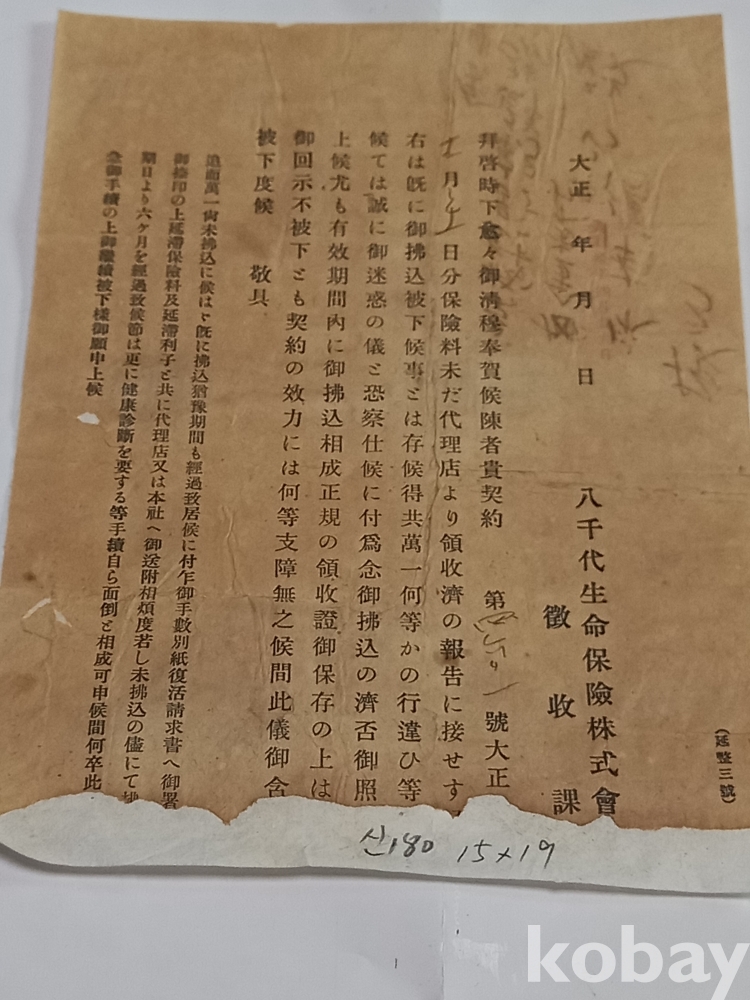 (延整三號)
八千代生命保險株式會
徵收課
大正 年 月 日
拜啓時下愈々御淸穆奉賀候陳者貴契約 第 號大正
月 日分保險料未だ代理店より領收濟の報告に接せす
右は既に御拂込被下候事とは存候得共萬一何等かの行違ひ等
候ては誠に御迷惑の儀と恐察仕候に付爲念御拂込の濟否御照
上候尤も有效期間內に御拂込相成正規の領收證御保存の上は
御回示不被下とも契約の效力には何等支障無之候間此儀御含
被下度候 敬具
追而萬一尙未拂込に候はゞ既に拂込猶豫期間も經過致居候に付乍御手數別紙復活請求書へ御署
御捺印の上延滯保險料及延滯利子と共に代理店又は本社へ御送附相煩度若し未拂込の儘にて拂
期日より六ケ月を經過致候節は更に健康診斷を要する等手續自ら面倒と相成可申候間何卒此
急御手續の上御繼續被下樣御願申上候
신180 15×19
kobay